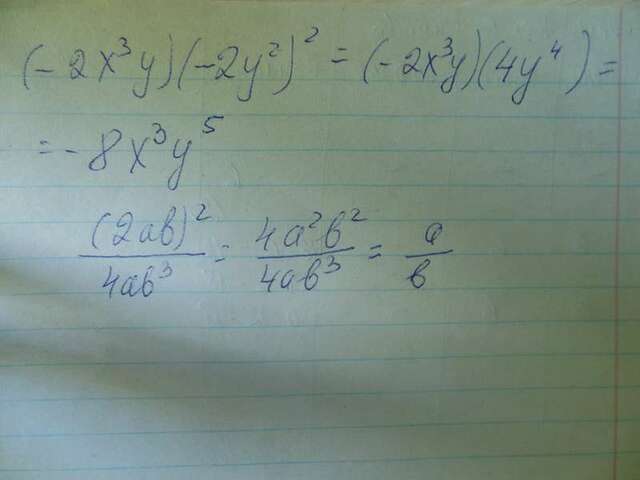 (-2x³y)(-2y²)² = (-2x³y)(4y⁴) =
= -8x³y⁵
(2ab)²/4ab³ = 4a²b²/4ab³ = a/b